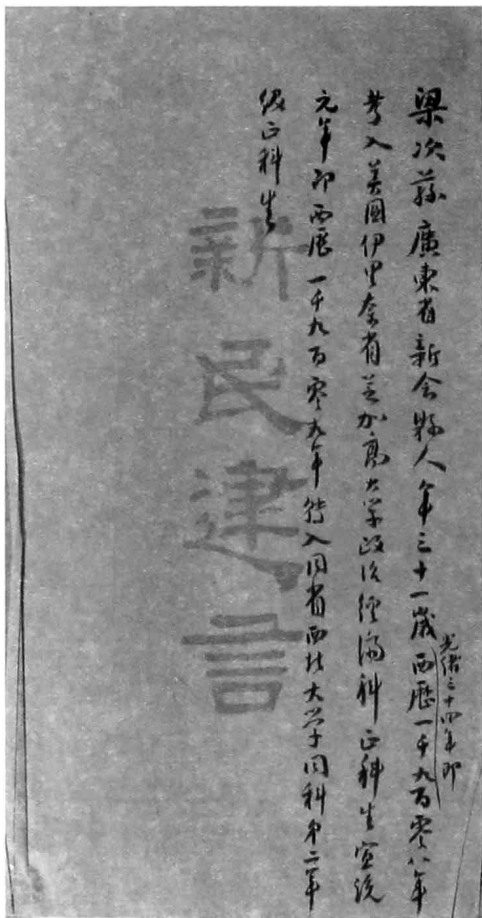 梁次蓀廣東省新會縣人年三十一歲西歷一千九百零八年
光緒三十四年即
考入美國伊里奈省芝加高大学政治經濟科正科生宣統
元年即西歷一千九百零九年轉入同省西北大学同科第二年
級正科生
新民建言